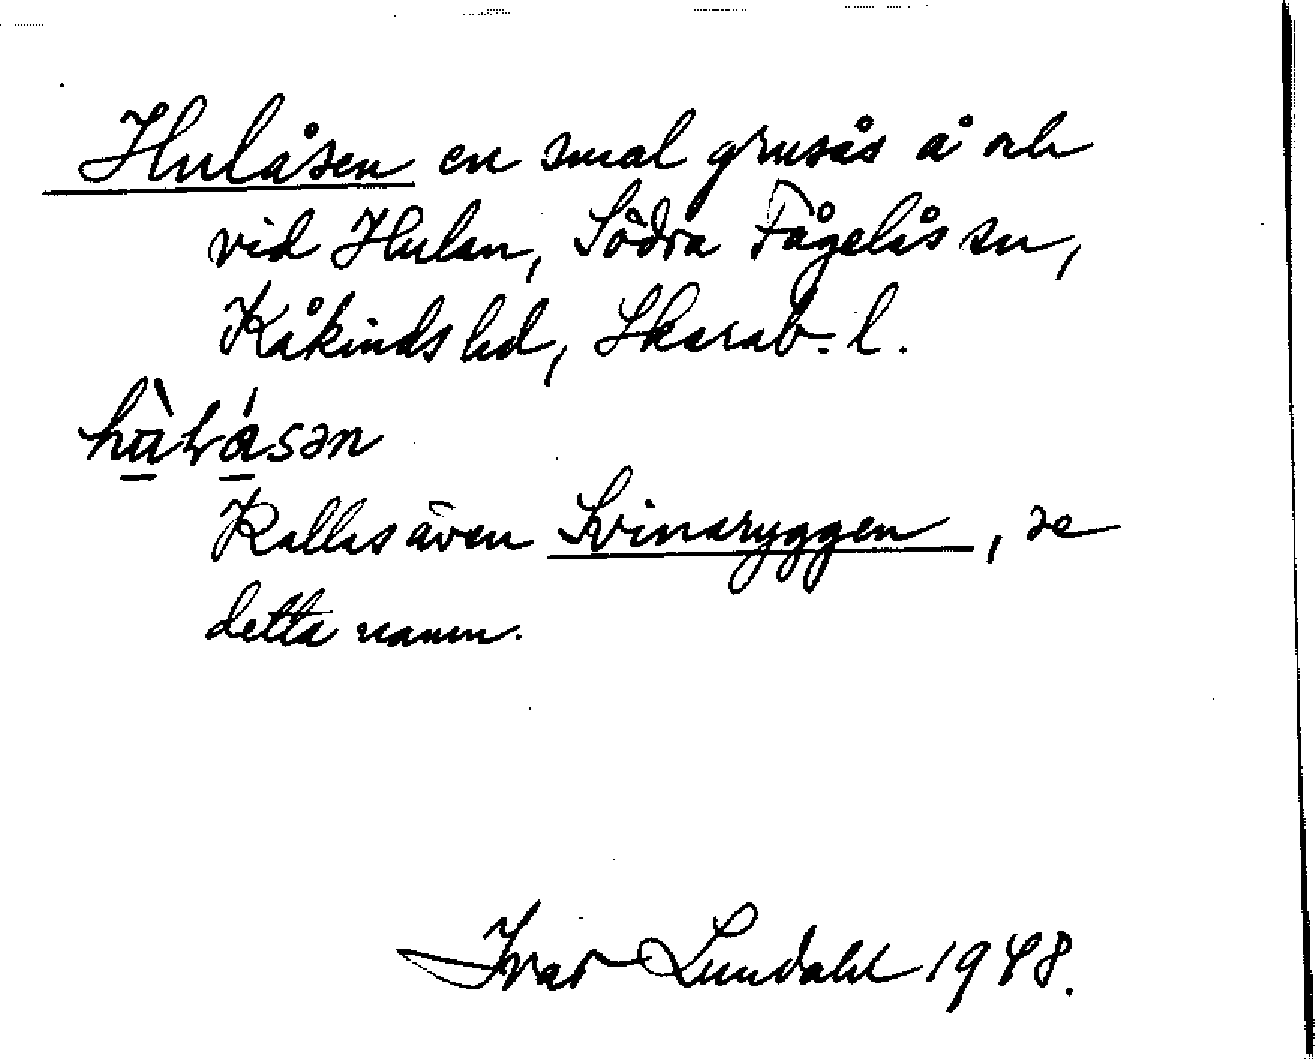 Hulåsen en smal grusås å och
vid Hulan, Södra Fågelås sn,
Kåkinds hd, Skarab. l.
Kallas även Svinaryggen, se
detta namn.
Ivar Lundahl 1948.